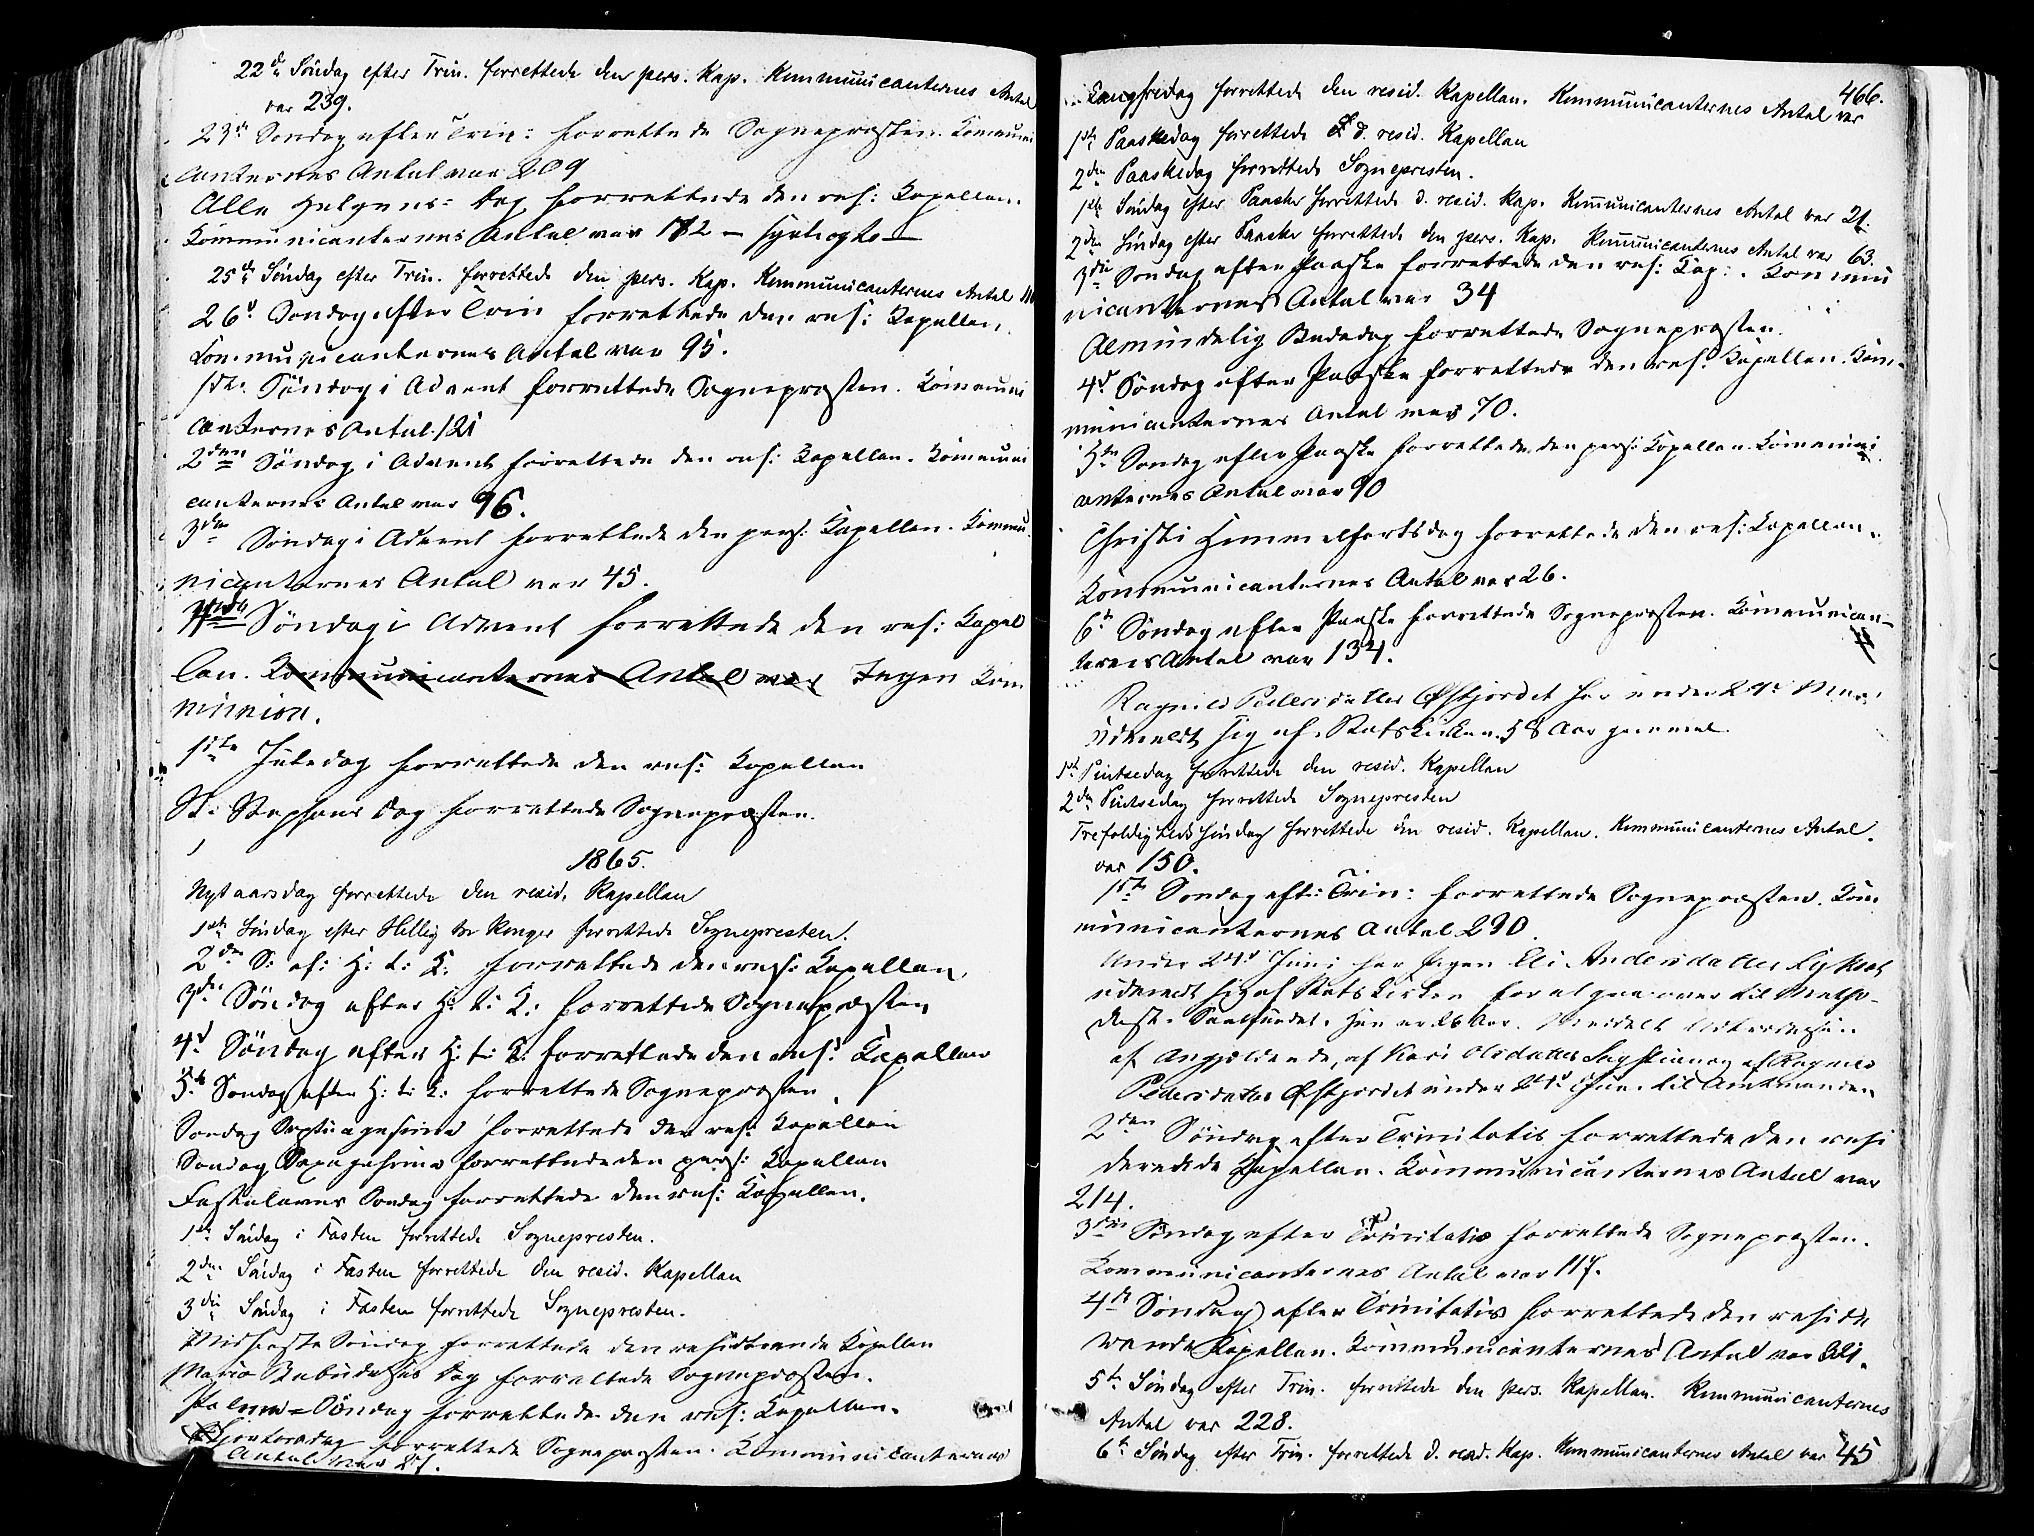 22de Søndag efter Trin. forrettede den pers. Kap. Kommunicanternes Antal
var 239.
23de Søndag efter Trin: forrettede Sognepræsten. Communi
canternes Antal var 209
Alle Helgens-Dag forrettede den res: Kapellan.
Kommunicanternes Antal var 182 –
25de Søndag efter Trin. forrettede den pers. Kap. Kommunicanternes Antal
26d Søndag efter Trin forrettede den res: Kapellan.
Communicanternes Antal var 95.
1ste Søndag i Advent forrettede Sognepræsten. Communi
canternes Antal 121
2den Søndag i Advent forrettede den res: Kapellan. Communi
canternes Antal var 96.
3die Søndag i Advent forrettede den pers: Kapellan. Kommu
nicanternes Antal var 45.
4de Søndag i Advent forrettede den res: Kapel
lan. Kommunicanternes Antal var Ingen Kom
munion.
1ste Juledag forrettede den res: Kapellan
St: Stephans Dag forrettede Sognepræsten.
1865.
Nytaarsdag forrettede den resid. Kapellan
1ste Søndag efter Hellig tre Konger forrettede Sognepresten.
2den S. ef: H: t: K: forrettede den res: Kapellan,
3die Søndag efter H: t: K: forrettede Sognepræsten
4d Søndag efter H: t: K: forrettede den res: Kapellan
5te Søndag efter H: t: K: forrettede Sognepræsten
Søndag Septuagesima forrettede den res: Kapellan
Søndag Sexagesima forrettede den pers: Kapellan
Fastelavns Søndag forrettede den res: Kapellan.
1ste Søndag i Fasten forrettede Sognepresten.
2den Søndag i Fasten forrettede den resid. Kapellan
3die Søndag i Fasten forrettede Sognepresten.
Midfaste Søndag forrettede den residerende Kapellan
Mariæ Bebudelses Dag forrettede Sognepræsten.
Palme-Søndag forrettede den res: Kapellan.
Skjærtorsdag forrettede Sognepræsten. Communicanternes
Antal var 27.
466.
Langfredag forrettede den resid. Kapellan. Kommunicanternes Antal var
1ste Paaskedag forrettede d. resid. Kapellan
2den Paaskedag forrettede Sognepresten.
1ste Søndag efter Paaske forrettede d. resid. Kap. Kommunicanternes Antal var 21.
2den Søndag efter Paaske forrettede den pers. Kap. Kommunicanternes Antal var 63.
3die Søndag efter Paaske forrettede den res: Kap:. Kommu
nicanternes Antal var 34
Almindelig Bededag forrettede Sognepræsten.
4d Søndag efter Paaske forrettede den res: Kapellan. Kom-
municanternes Antal var 70.
5te Søndag efter Paaske forrettede den pers: Kapellan. Kommuni
canternes Antal var 90
Christi Himmelfartsdag forrettede den res: Kapellan.
Kommunicanternes Antal var 26.
6te Søndag efter Paaske forrettede Sognepræsten. Kommunican-
ternes Antal var 134.
Ragnild Pedersdatter Østfjordet har under 24d Mai
udmeldt sig af Statskirken. 58 Aar gammel.
1ste Pintsedag forrettede den resid. Kapellan
2den Pintsedag forrettede Sognepresten
Trefoldigheds Søndag forrettede den resid. Kapellan. Kommunicanternes Antal
var 150.
1ste Søndag eft: Trin: forrettede Sognepræsten. Kom
municanternes Antal 290.
Under 24d Juni har Pigen Eli Andersdatter
udmeldt sig af Statskirken for at gaa over til Metho-
dist-Samfundet. Hun er 26 Aar.
af Angjældende, af Kari Olsdatter og af Ragnild
Pedersdatter Østfjordet under 24d Juni til Amtmanden
2den Søndag efter Trinitatis forrettede den resi
derende Kapellan. Kommunicanternes Antal var
214.
3die Søndag efter Trinitatis forrettede Sognepræsten.
Kommunicanternes Antal var 117.
4de Søndag efter Trinitatis forrettede den reside
rende Kapellan. Kommunicanternes Antal var 321.
5te Søndag efter Trin. forrettede den pers. Kapellan. Kommunicanternes
Antal var 228.
6te Søndag efter Trin. forrettede d. resid. Kap. Kommunicanternes Antal var 45